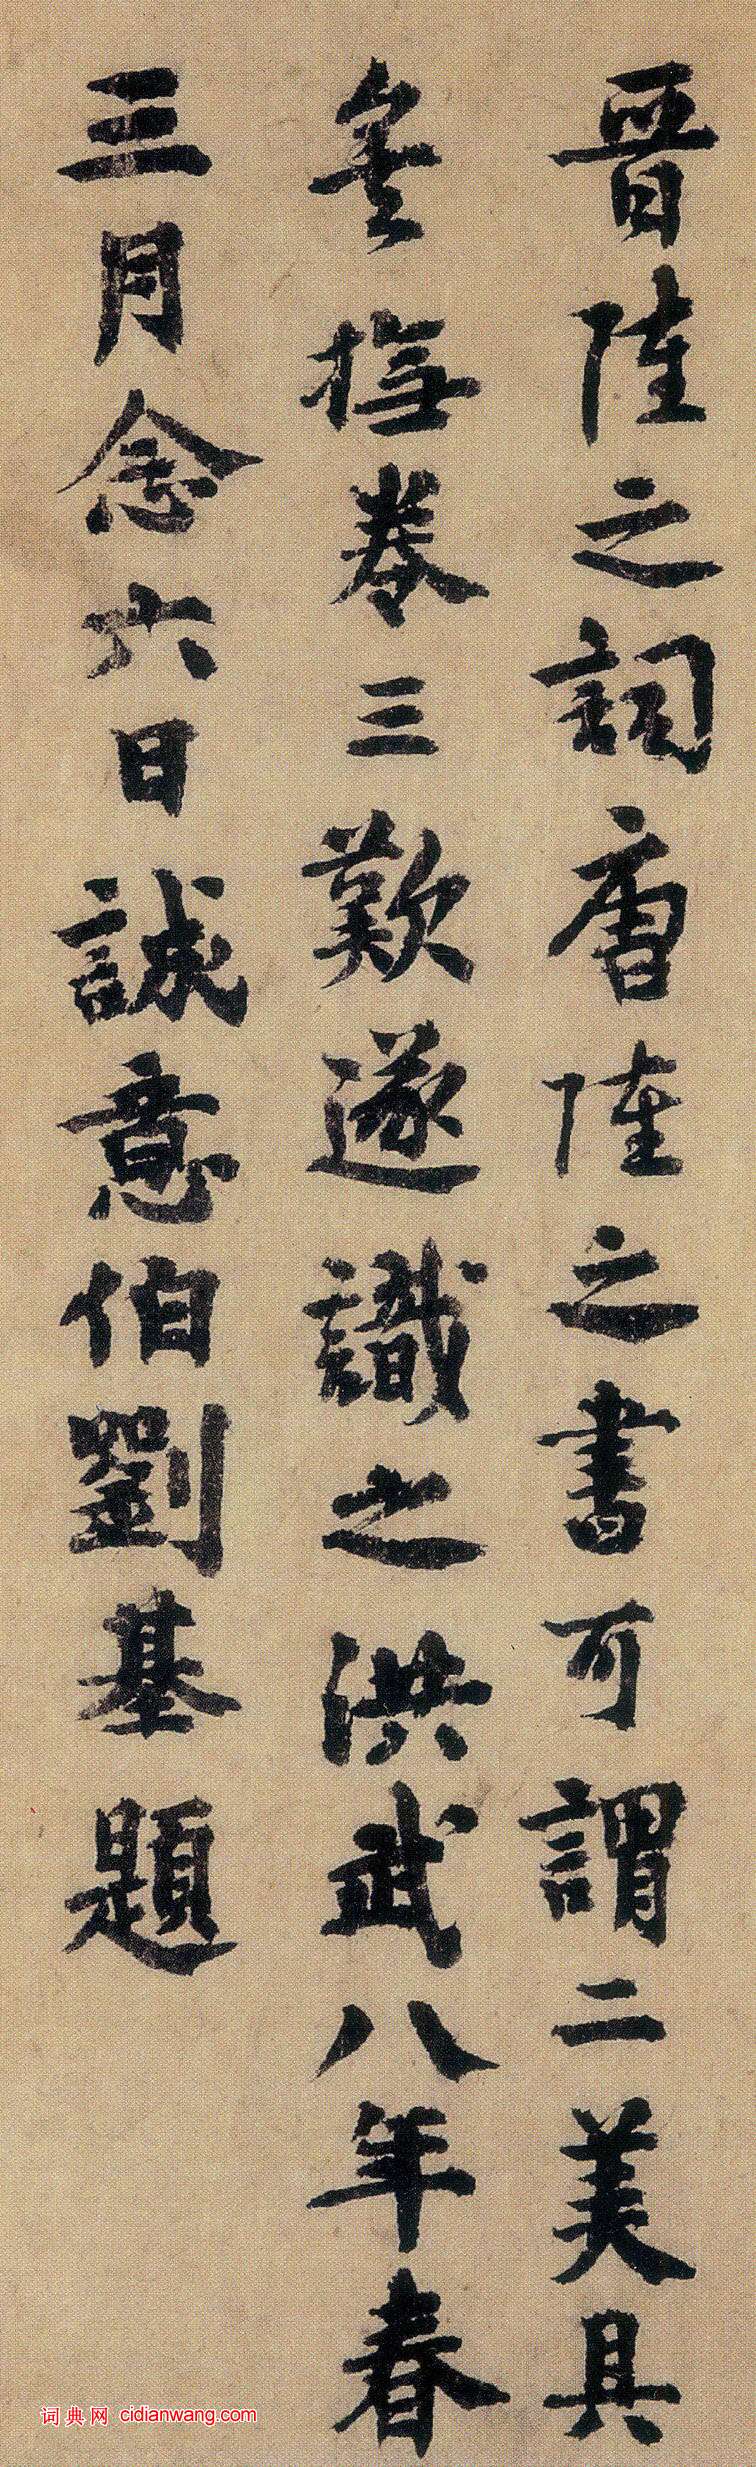 晋陸之詞唐陸之書可謂二美具
矣撫卷三歎遂識之洪武八年春
三月念六日誠意伯劉基題
词典网 cidianwang.com